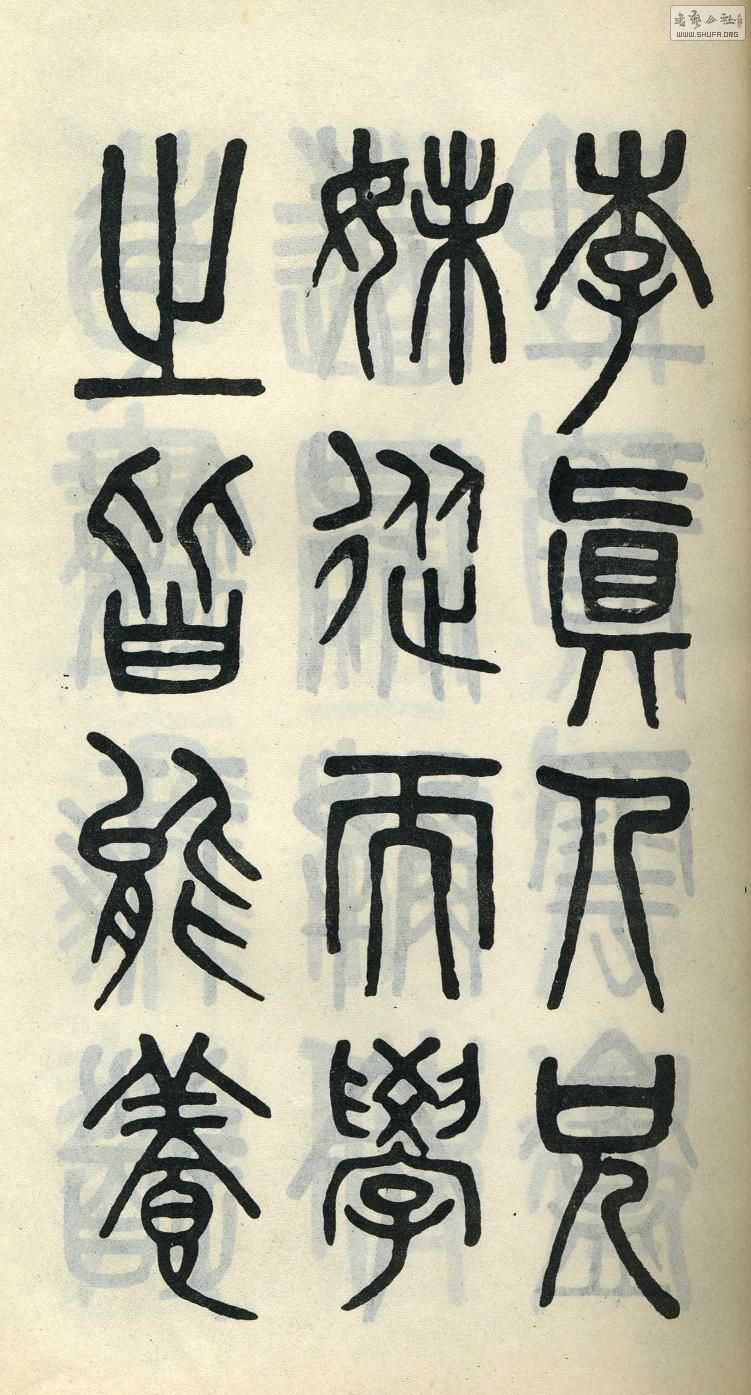 李真人兄
妹從而學
之皆能養
書藝公社
WWW.SHUFA.ORG